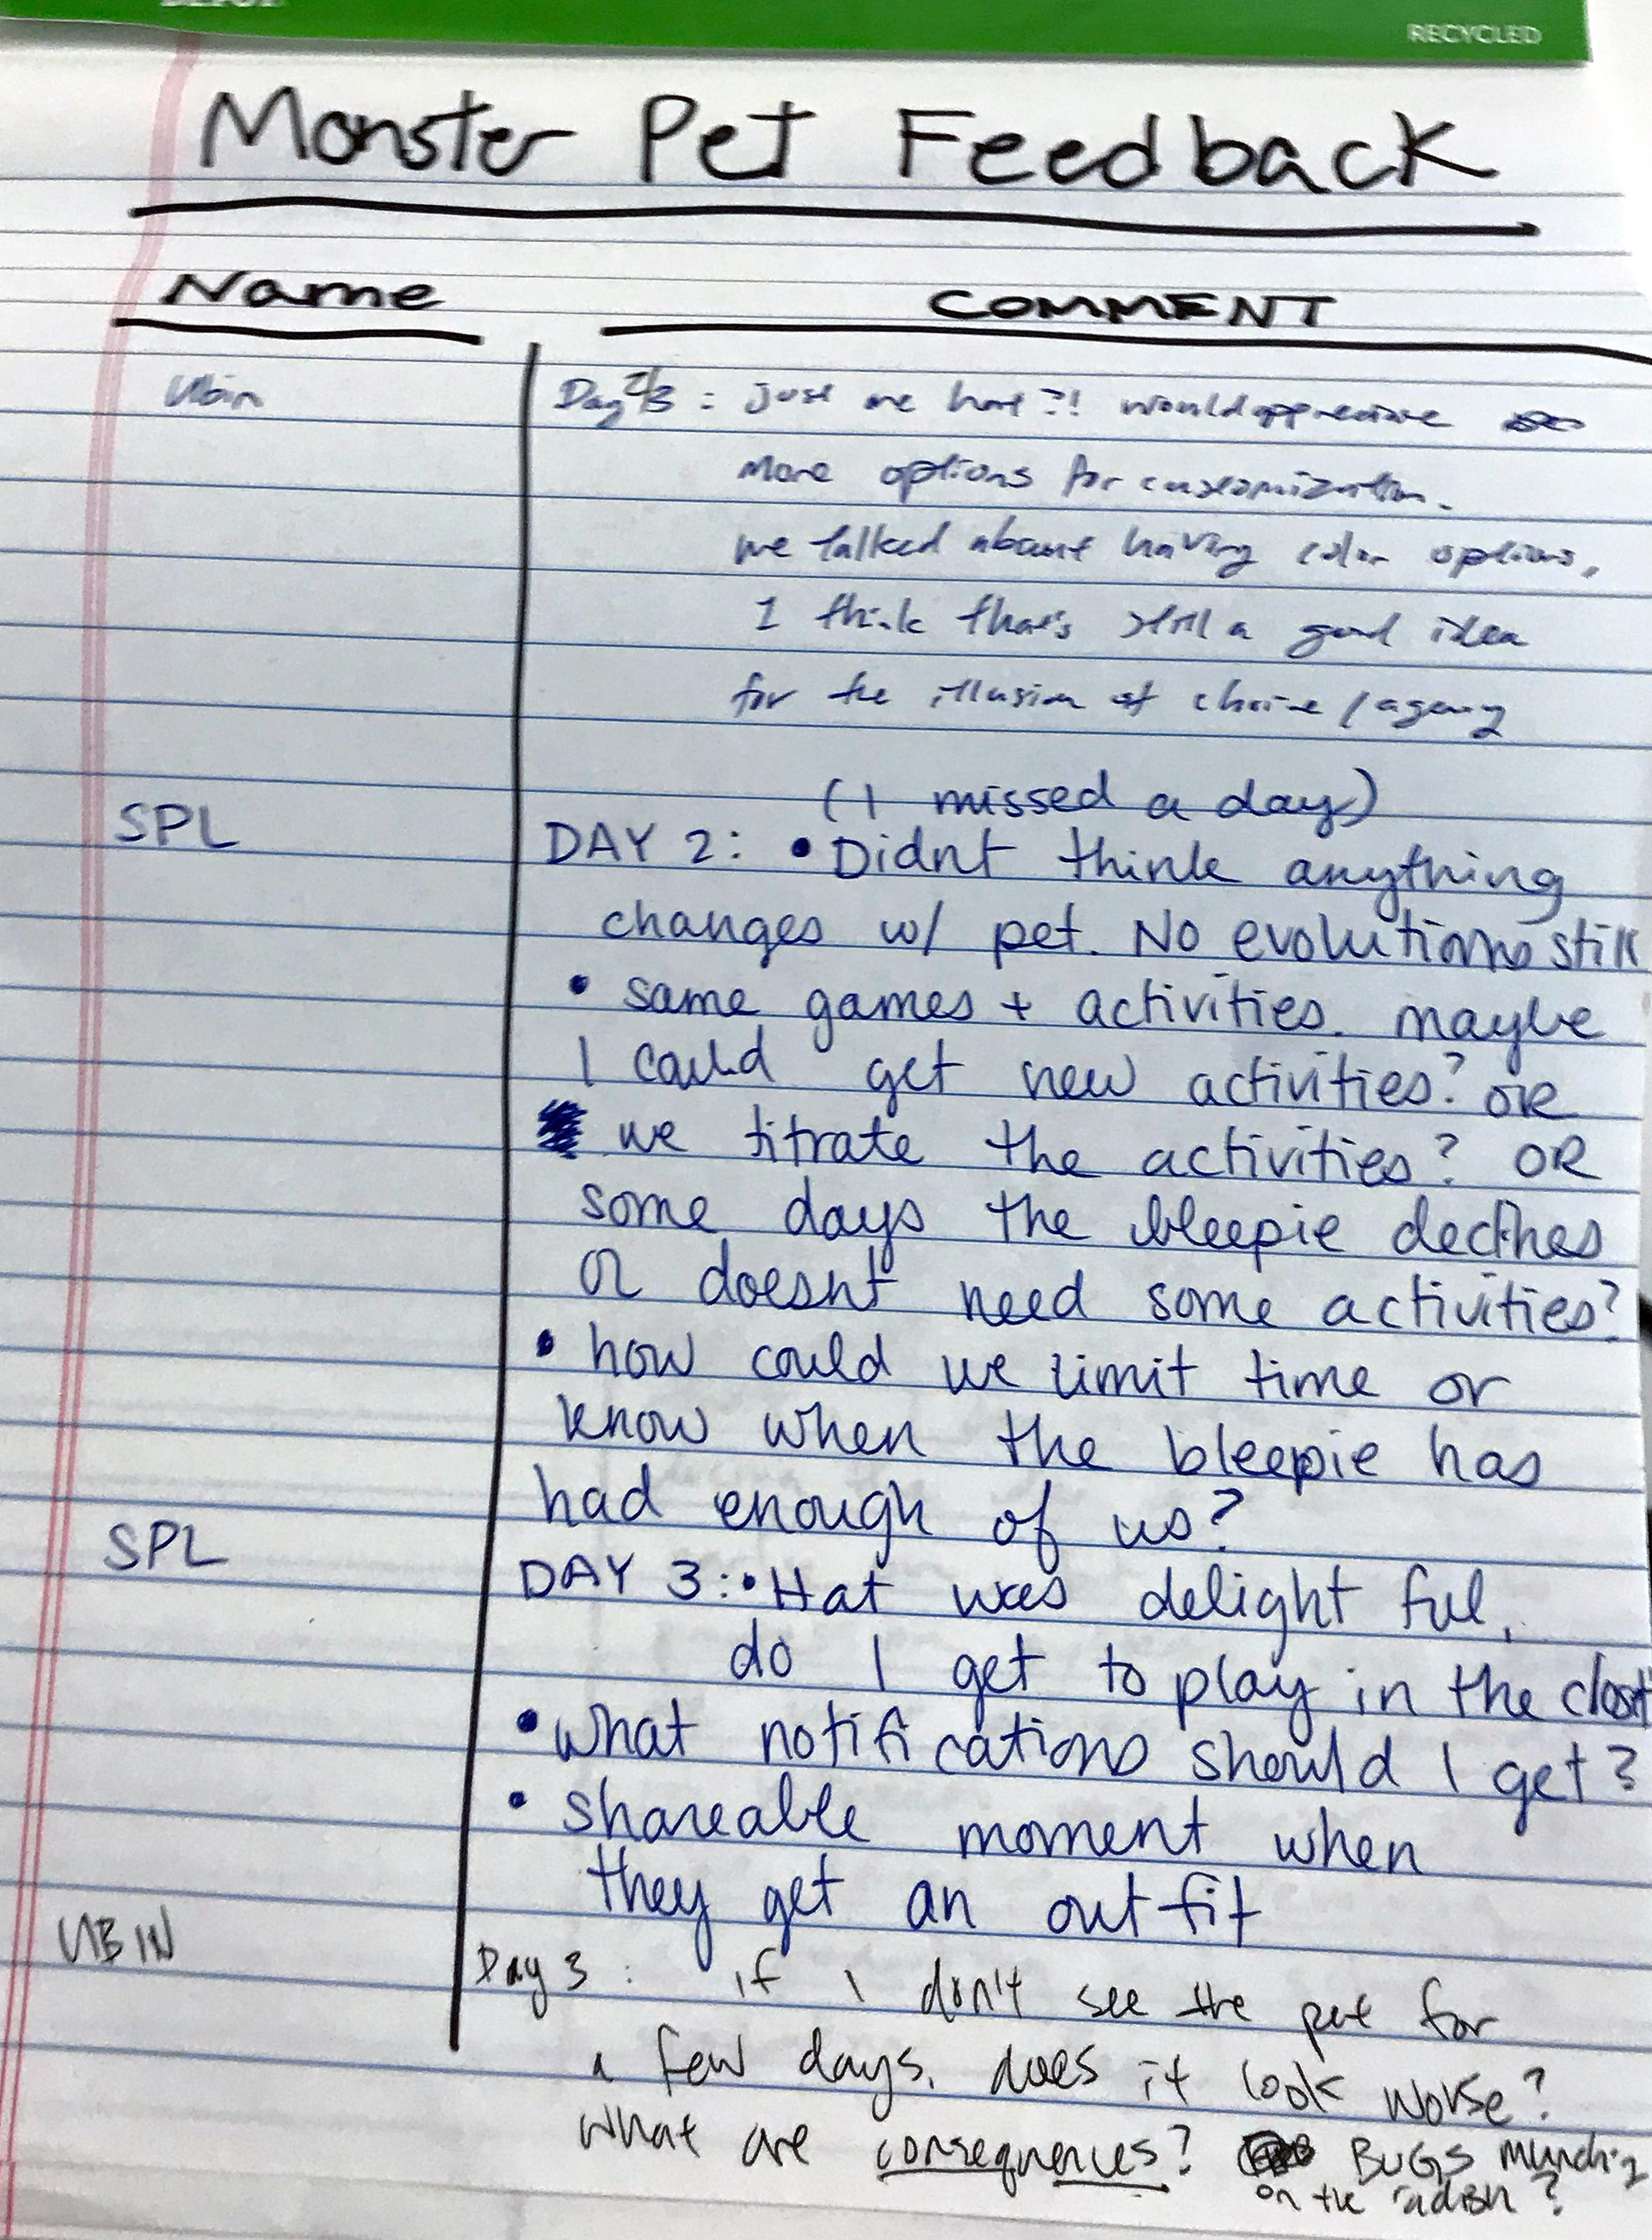 RECYCLED
Monster Pet Feedback
Name COMMENT
Ubin Day 2/3 : just one hat?! would appreciate
more options for customization.
we talked about having color options,
I think that's still a good idea
for the illusion of choice / agency
(I missed a day)
SPL DAY 2: • Didnt think anything
changes w/ pet. No evolutions still
• same games + activities. maybe
I could get new activities? OR
we titrate the activities? OR
some days the bleepie declines
OR doesnt need some activities?
• how could we limit time or
know when the bleepie has
had enough of us?
SPL DAY 3: • Hat was delightful,
do I get to play in the closet
• what notifications should I get?
• shareable moment when
they get an outfit
UBIN Day 3 : if I don't see the pet for
a few days, does it look worse?
what are consequences? BUGS munching
on the radish?